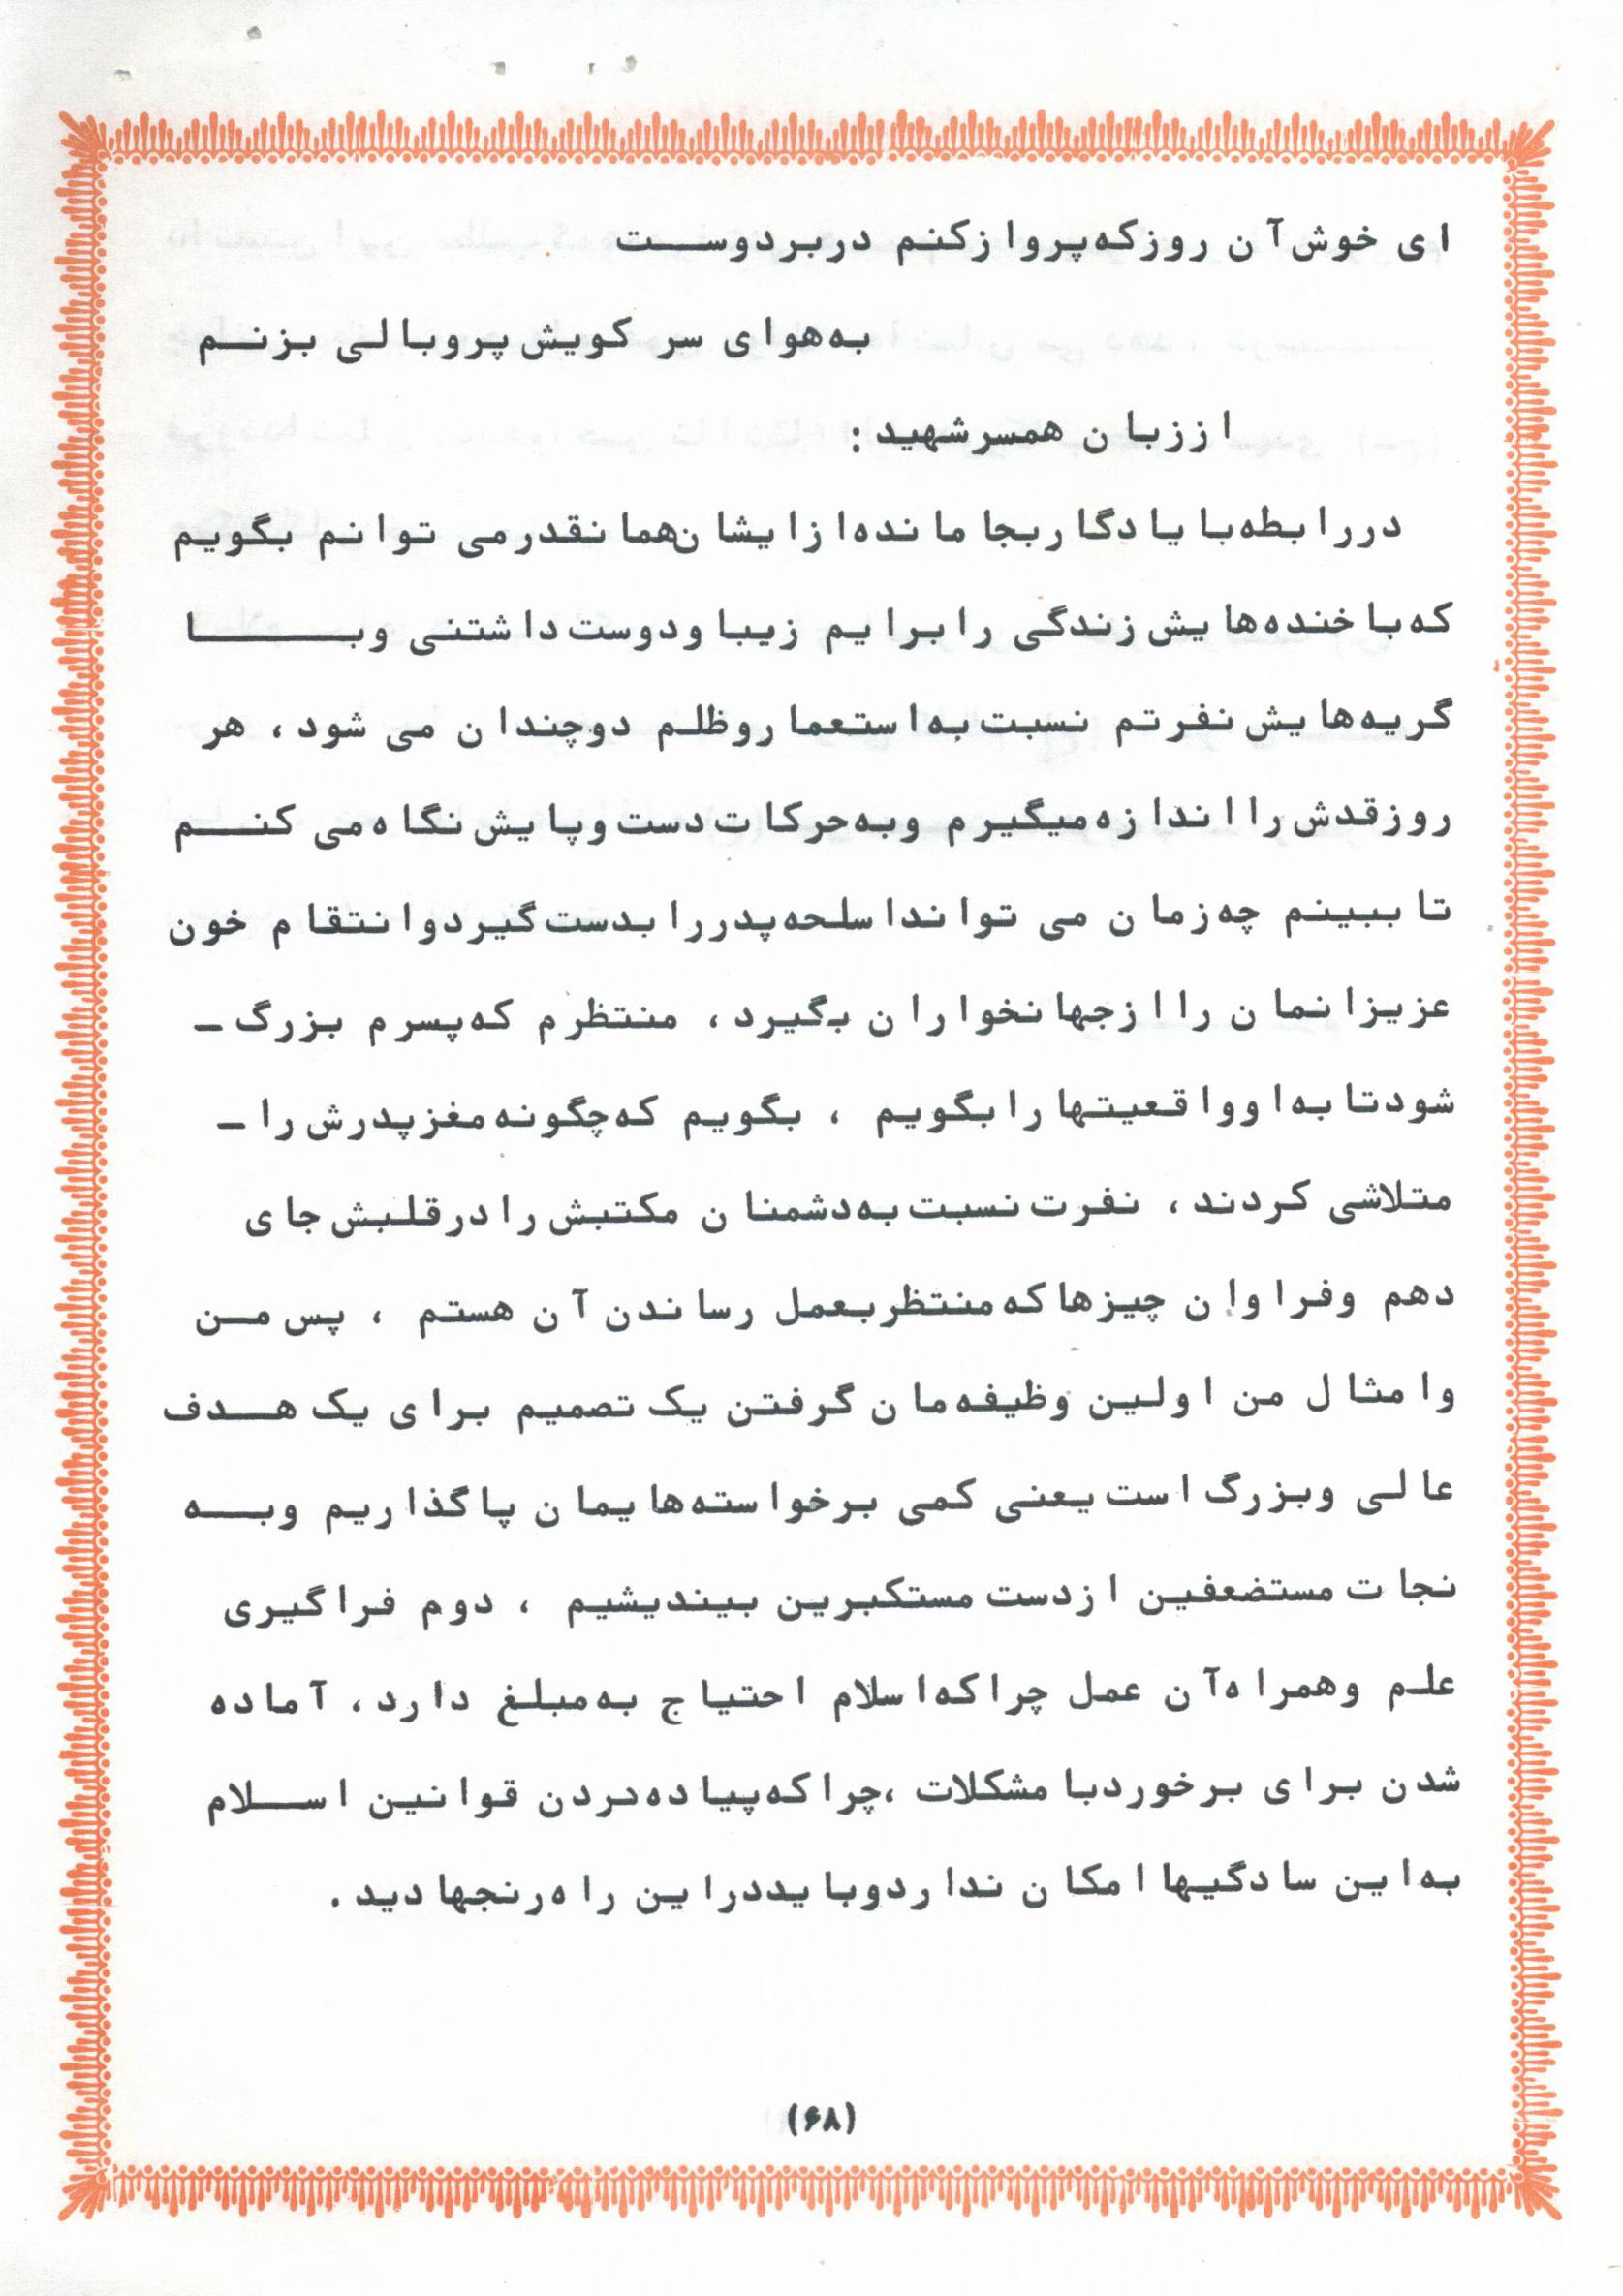 ای خوش آن روز که پرواز کنم در بر دوست
به هوای سر کویش پر و بالی بزنم
از زبان همسر شهید :
در رابطه با یادگار بجا مانده از ایشان همانقدر می توانم بگویم
که با خنده هایش زندگی را برایم زیبا و دوست داشتنی و با
گریه هایش نفرتم نسبت به استعمار و ظلم دو چندان می شود ، هر
روز قدش را اندازه میگیرم و به حرکات دست و پایش نگاه می کنم
تا ببینم چه زمان می تواند اسلحه پدر را بدست گیرد و انتقام خون
عزیزانمان را از جهانخواران بگیرد ، منتظرم که پسرم بزرگ ـ
شود تا به او واقعیتها را بگویم ، بگویم که چگونه مغز پدرش را ـ
متلاشی کردند ، نفرت نسبت به دشمنان مکتبش را در قلبش جای
دهم و فراوان چیزها که منتظر بعمل رساندن آن هستم ، پس من
و امثال من اولین وظیفه مان گرفتن یک تصمیم برای یک هدف
عالی و بزرگ است یعنی کمی بر خواسته هایمان پا گذاریم و به
نجات مستضعفین از دست مستکبرین بیندیشیم ، دوم فراگیری
علم و همراه آن عمل چرا که اسلام احتیاج به مبلغ دارد ، آماده
شدن برای برخورد با مشکلات ، چرا که پیاده کردن قوانین اسلام
به این سادگیها امکان ندارد و باید در این راه رنجها دید .
(۶۸)